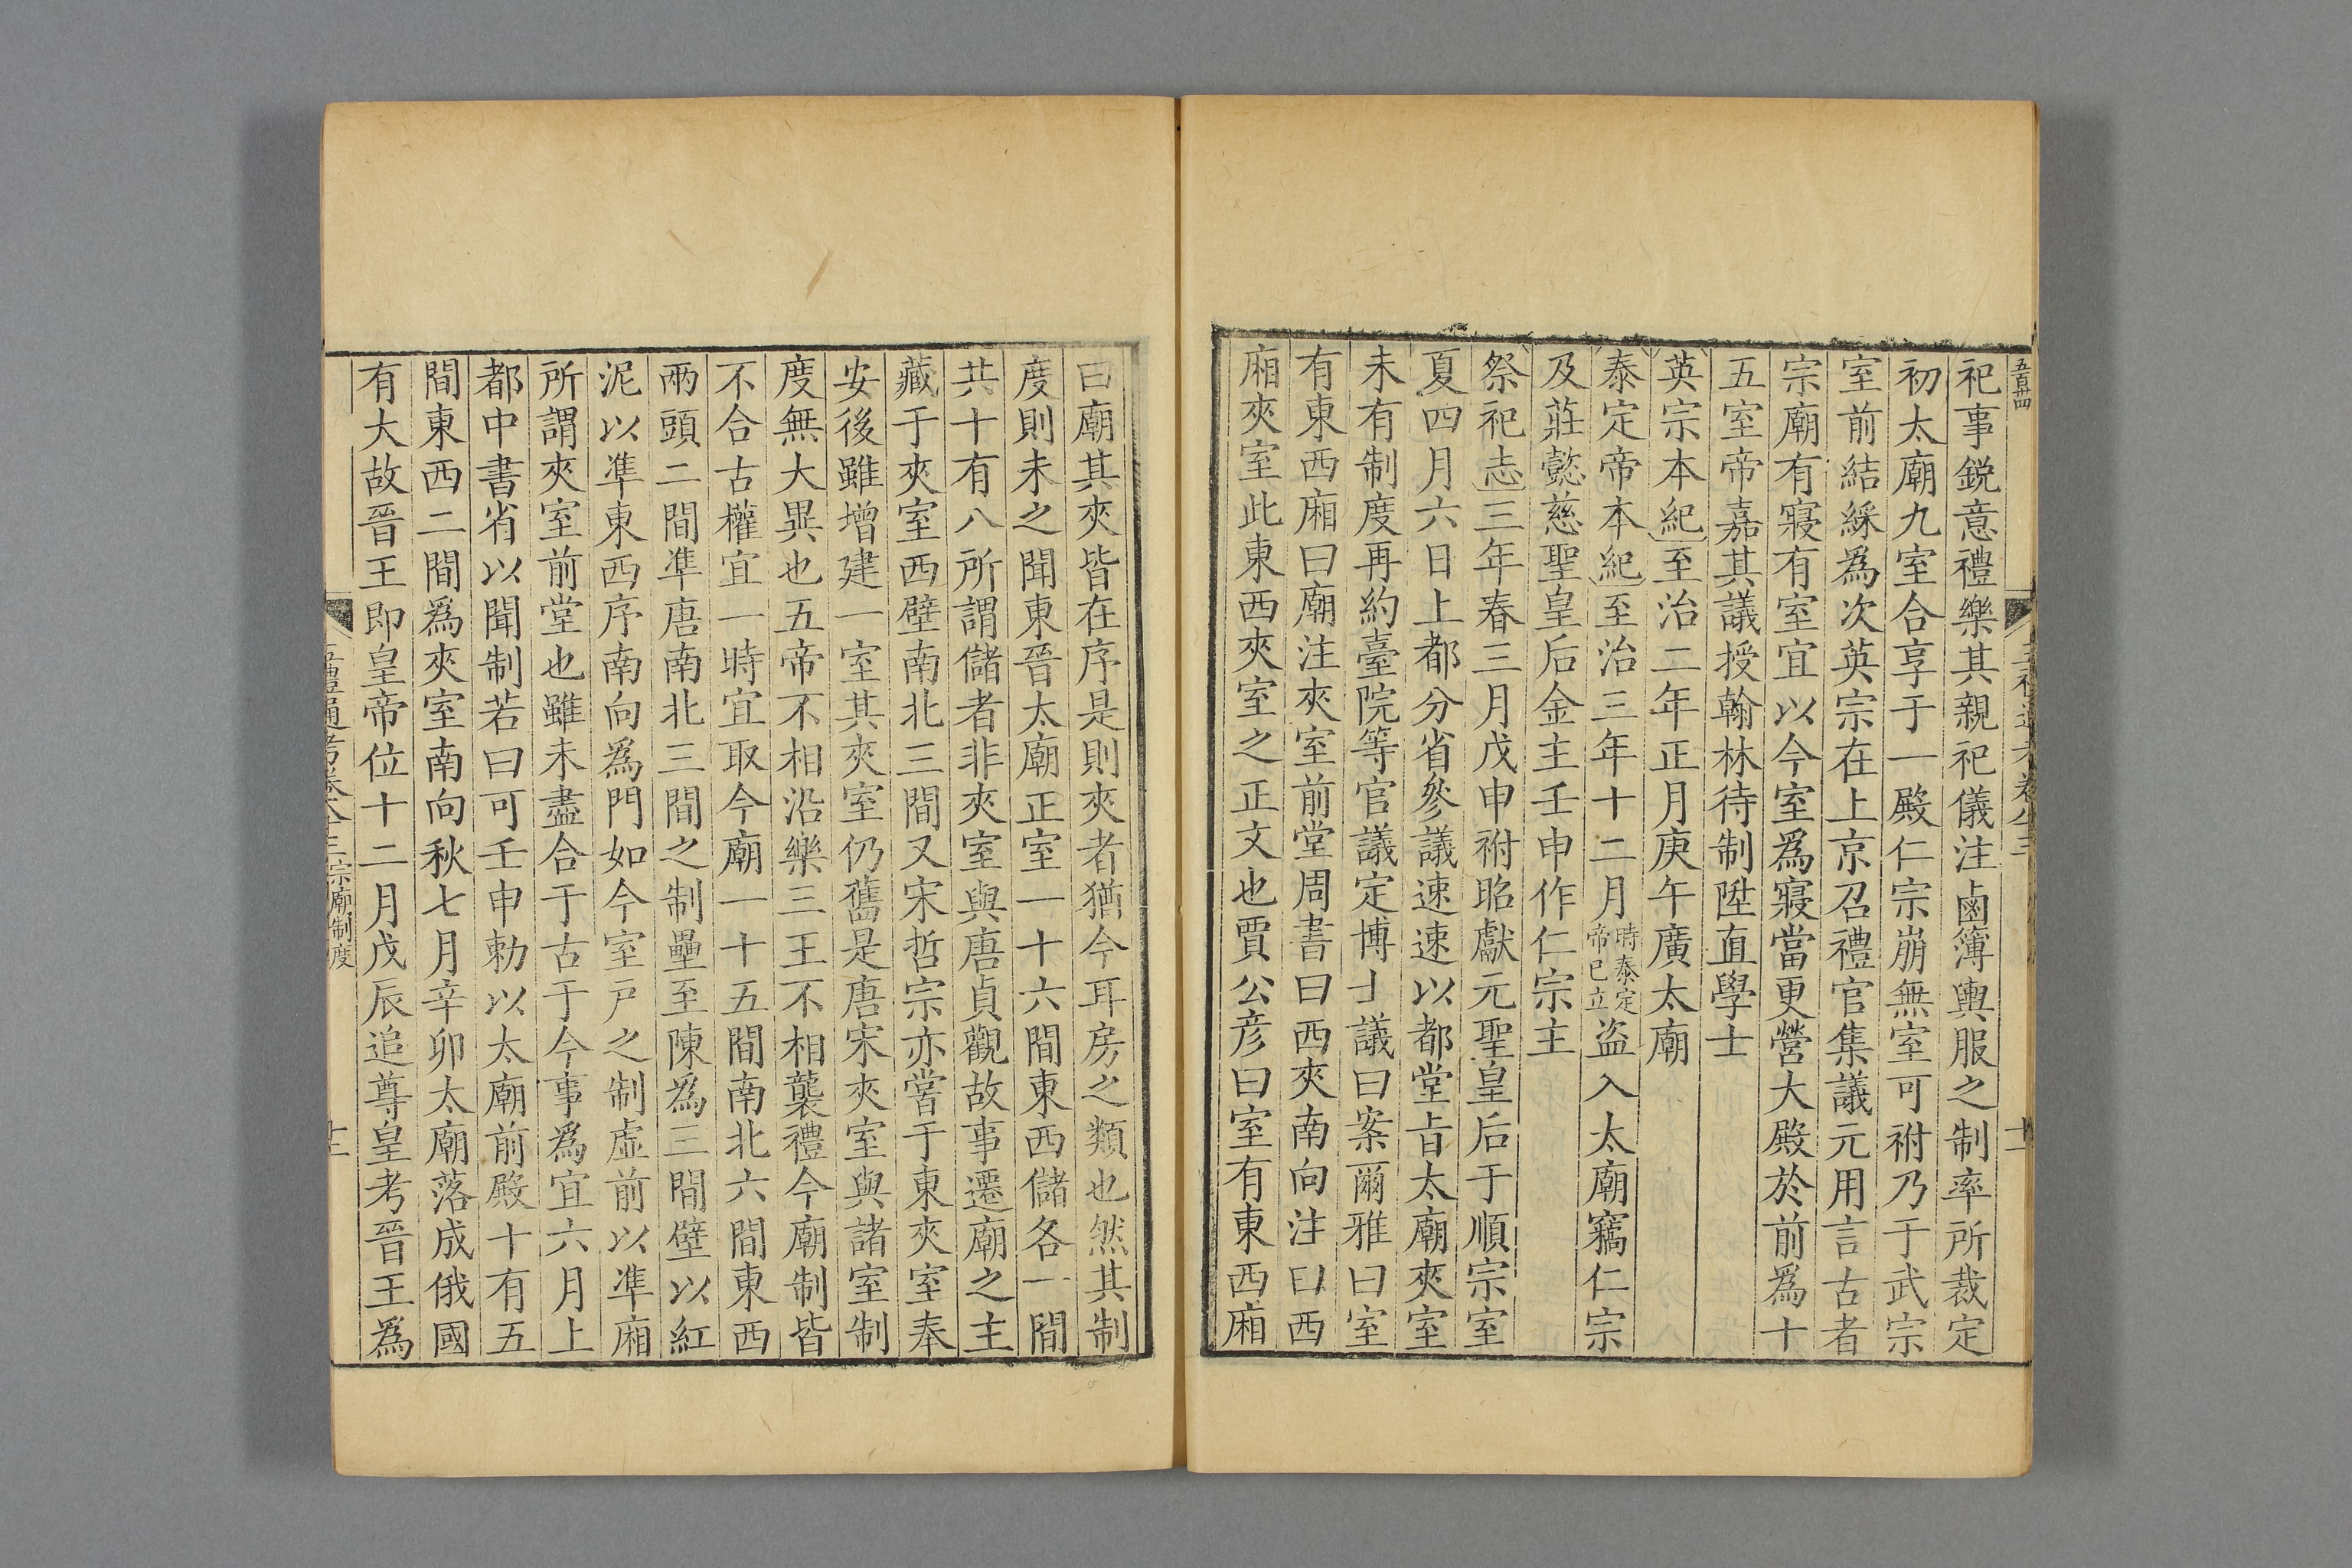 五百卌四
祀事鋭意禮樂其親祀儀注鹵簿輿服之制率所裁定
初太廟九室合享于一殿仁宗崩無室可祔乃于武宗
室前結綵爲次英宗在上京召禮官集議元用言古者
宗廟有寢有室宜以今室爲寢當更營大殿於前爲十
五室帝嘉其議授翰林待制陞直學士
英宗本紀至治二年正月庚午廣太廟
泰定帝本紀至治三年十二月時泰定帝已立盗入太廟竊仁宗
及莊懿慈聖皇后金主壬申作仁宗主
祭祀志三年春三月戊申祔昭獻元聖皇后于順宗室
夏四月六日上都分省參議速速以都堂㫖太廟夾室
未有制度再約臺院等官議定博士議曰案爾雅曰室
有東西廂曰廟注夾室前堂周書曰西夾南向注曰西
廂夾室此東西夾室之正文也賈公彦曰室有東西廂
曰廟其夾皆在序是則夾者猶今耳房之類也然其制
度則未之聞東晉太廟正室一十六間東西儲各一間
共十有八所謂儲者非夾室與唐貞觀故事遷廟之主
藏于夾室西壁南北三間又宋哲宗亦嘗于東夾室奉
安後雖增建一室其夾室仍舊是唐宋夾室與諸室制
度無大異也五帝不相沿樂三王不相襲禮今廟制皆
不合古權宜一時宜取今廟一十五間南北六間東西
兩頭二間準唐南北三間之制壘至陳爲三間壁以紅
泥以準東西序南向爲門如今室户之制虚前以準廂
所謂夾室前堂也雖未盡合于古于今事爲宜六月上
都中書省以聞制若曰可壬申勅以太廟前殿十有五
間東西二間爲夾室南向秋七月辛卯太廟落成俄國
有大故晉王即皇帝位十二月戊辰追尊皇考晉王爲
五禮通考卷八十三宗廟制度
十二